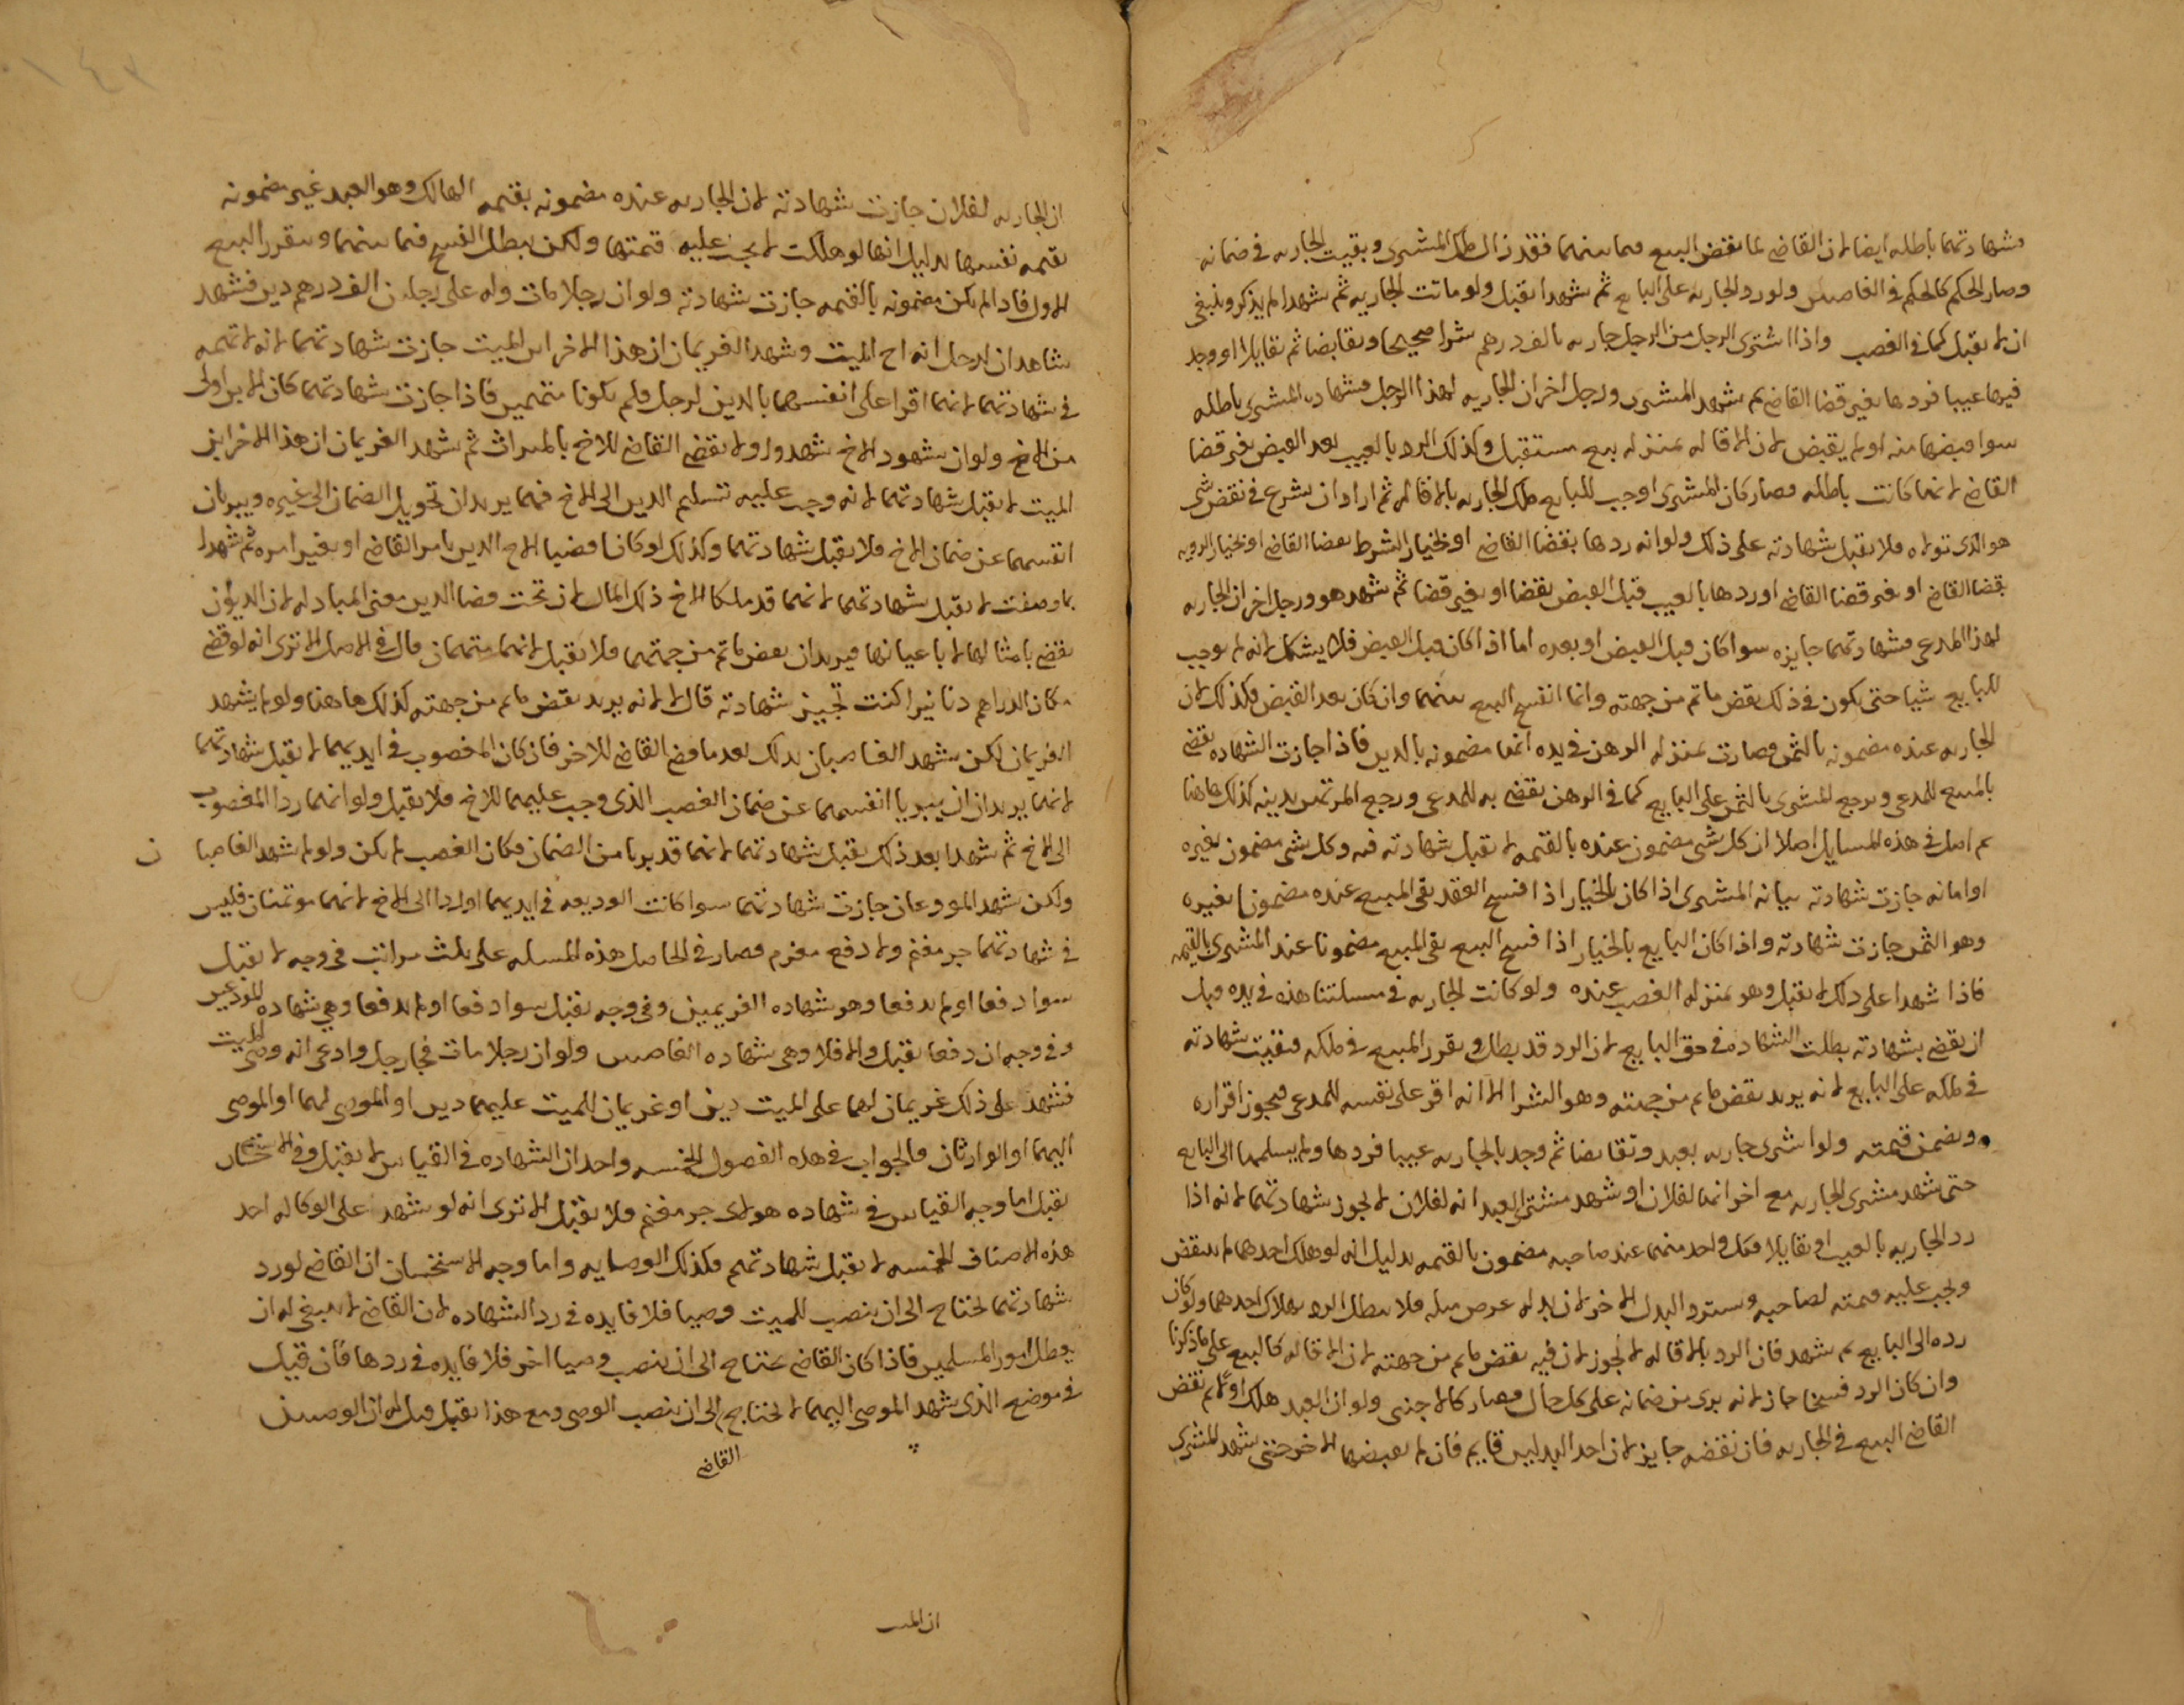 فشهادتهما باطله ايضا لان القاضي لما نقض البيع فيما بينهما فقد زال ملك المشترى وبقيت الجاريه في ضمانه
وصار الحكم كالحكم في الغاصبين ولو رد الجاريه على البايع ثم شهدا تقبل ولو ماتت الجاريه ثم شهدا لم يذكر وينبغي
ان لا تقبل كما في الغصب واذا اشترى الرجل من الرجل جاريه بالف درهم شرا صحيحا وتقابضا ثم تقايلا او وجد
فيها عيبا فردها بغير قضا القاضي ثم شهد المشترى ورجل اخر ان الجاريه لهذا الرجل فشهاده المشترى باطله
سوا قبضها منه او لم يقبض لان الاقاله بمنزله بيع مستقبل وكذلك الرد بالعيب بعد القبض بغير قضا
القاضي لانها كانت باطله فصار كان المشترى اوجب للبايع ملك الجاريه بالاقاله ثم اراد ان يشرع في نقض شى
هو الذى تولاه فلا تقبل شهادته على ذلك ولو انه ردها بقضا القاضي او بخيار الشرط بقضا القاضي او بخيار الرويه
بقضا القاضي او بغير قضا القاضي او ردها بالعيب قبل القبض بقضا او بغير قضا ثم شهد هو ورجل اخر ان الجاريه
لهذا المدعى فشهادتهما جايزه سوا كان قبل القبض او بعده اما اذا كان قبل القبض فلا يشكل لانه لم يوجب
للبايع شيا حتى يكون في ذلك نقض ما تم من جهته وانما انفسخ البيع بينهما وان كان بعد القبض فكذلك لان
الجاريه عنده مضمونه بالثمن فصارت بمنزله الرهن في يده انها مضمونه بالدين فاذا اجازت الشهاده يقضى
بالمبيع للمدعى ويرجع المشترى بالثمن على البايع كما في الرهن يقضى به للمدعى ورجع المرتهن بدينه كذلك هاهنا
ثم اصل في هذه المسايل اصلا ان كل شى مضمون عنده بالقيمه لا تقبل شهادته فيه وكل شى مضمون بغيره
او امانه جازت شهادته بيانه المشترى اذا كان بالخيار اذا فسخ العقد بقى المبيع عنده مضمونا بغيره
وهو الثمن جازت شهادته واذا كان البايع بالخيار اذا فسخ البيع بقى المبيع مضمونا عند المشترى بالقيمه
فاذا شهدا على ذلك لا تقبل وهو بمنزله الغصب عنده ولو كانت الجاريه في مسلتنا هذه في يده قبل
ان يقضى بشهادته بطلت الشهاده في حق البايع لان الرد قد بطل وتقرر المبيع في ملكه فبقيت شهادته
في ملكه على البايع لانه يريد نقض ما تم من جهته وهو الشرا الا انه اقر على نفسه للمدعى فيجوز اقراره
ويضمن قيمته ولو اشترى جاريه بعبد وتقابضا ثم وجد بالجاريه عيبا فردها ولم يسلمها الى البايع
حتى شهد مشترى الجاريه مع اخر انها لفلان او شهد مشترى العبد انه لفلان لا تجوز شهادتهما لانه اذا
رد الجاريه بالعيب او تقايلا فكل واحد منهما عند صاحبه مضمون بالقيمه بدليل انه لو هلك احدهما لم ينتقض
ويجب عليه قيمته لصاحبه ويسترد البدل الاخر لان بدله عرض مثله فلا يبطل الرد بهلاك احدهما ولو كان
رده الى البايع ثم شهد فان الرد بالاقاله لا يجوز لان فيه نقض ما تم من جهته لان الاقاله كالبيع على ما ذكرنا
وان كان الرد فسخا جاز لانه برى من ضمانه على كل حال فصار كالاجنبى ولو ان العبد هلك اولا ثم نقض
القاضي البيع في الجاريه فان نقضه جايز لان احد البدلين قايم فان لم يقبضها الاخر حتى شهد المشترى
ان الجاريه لفلان جازت شهادته لان الجاريه عنده مضمونه بقيمه الهالك وهو العبد غير مضمونه
بقيمه نفسها بدليل انها لو هلكت لا يجب عليه قيمتها ولكن يبطل الفسخ فيما بينهما ويتقرر البيع
الاول فاذا لم يكن مضمونه بالقيمه جازت شهادته ولو ان رجلا مات وله على رجلين الف درهم دين فشهد
شاهدان لرجل انه اخ الميت وشهد الغريمان ان هذا الاخر ابن الميت جازت شهادتهما لانه لا تهمه
في شهادتهما لانهما اقرا على انفسهما بالدين لرجل فلم يكونا متهمين فاذا جازت شهادتهما كان الابن اولى
من الاخ ولو ان شهود الاخ شهدوا ولم يقضى القاضي للاخ بالميراث ثم شهد الغريمان ان هذا الاخر ابن
الميت لا تقبل شهادتهما لانه وجب عليه تسليم الدين الى الاخ فهما يريدان تحويل الضمان الى غيره ويبريان
انفسهما عن ضمان الاخ فلا تقبل شهادتهما وكذلك لو كانا قضيا الاخ الدين بامر القاضي او بغير امره ثم شهدا
بما وصفت لا تقبل شهادتهما لانهما قد ملكا الاخ ذلك المال لان تحت قضا الدين معنى المبادله لان الديون
تقضى بامثالها لا باعيانها فيريدان نقض ما تم من جهتهما فلا تقبل لانهما متهمان قال في الاصل الا ترى انه لو قضى
مكان الدراهم دنانيرا كنت تجيز شهادته قال لا لانه يريد نقض ما تم من جهته كذلك هاهنا ولو لم يشهد
الغريمان لكن شهد الغاصبان بذلك بعد ما قضى القاضي للاخر فان كان المغصوب في ايديهما لا تقبل شهادتهما
لانهما يريدان ان يبريا انفسهما عن ضمان الغصب الذى وجب عليهما للاخ فلا تقبل ولو انهما ردا المغصوب
الى الاخ ثم شهدا بعد ذلك تقبل شهادتهما لانهما قد بريا من الضمان فكان الغصب لم يكن ولو لم يشهد الغاصبا
ن
ولكن شهد المودعان جازت شهادتهما سوا كانت الوديعه في ايديهما او ردا الى الاخ لانهما موتمنان فليس
في شهادتهما جر مغنم ولا دفع مغرم فصار في الحاصل هذه المسله على ثلث مراتب في وجه لا تقبل
سوا دفعا او لم يدفعا وهو شهاده الغريمين وفي وجه تقبل سوا دفعا او لم يدفعا وهى شهاده المودعين
وفي وجه ان دفعا تقبل والا فلا وهى شهاده الغاصبين ولو ان رجلا مات فجا رجل وادعى انه وصى الميت
فشهد على ذلك غريمان لهما على الميت دين او غريمان للميت عليهما دين او الموصى لهما او الموصى
اليهما او الوارثان فالجواب في هذه الفصول الخمسه واحد ان الشهاده في القياس لا تقبل وفي الاستحسان
تقبل اما وجه القياس في شهاده هولاى جر مغنم فلا تقبل الا ترى انه لو شهد على الوكاله احد
هذه الاصناف الخمسه لا تقبل شهادتهم فكذلك الوصايه واما وجه الاستحسان ان القاضي لو رد
شهادتهما يحتاج الى ان ينصب للميت وصيا فلا فايده في رد الشهاده لان القاضي لا ينبغي له ان
يعطل امور المسلمين فاذا كان القاضي يحتاج الى ان ينصب وصيا اخر فلا فايده في ردها فان قيل
في موضع الذى شهد الموصى اليهما لا يحتاج الى ان ينصب الوصى ومع هذا تقبل قيل له ان الوصيين
القاضي
ان الميت